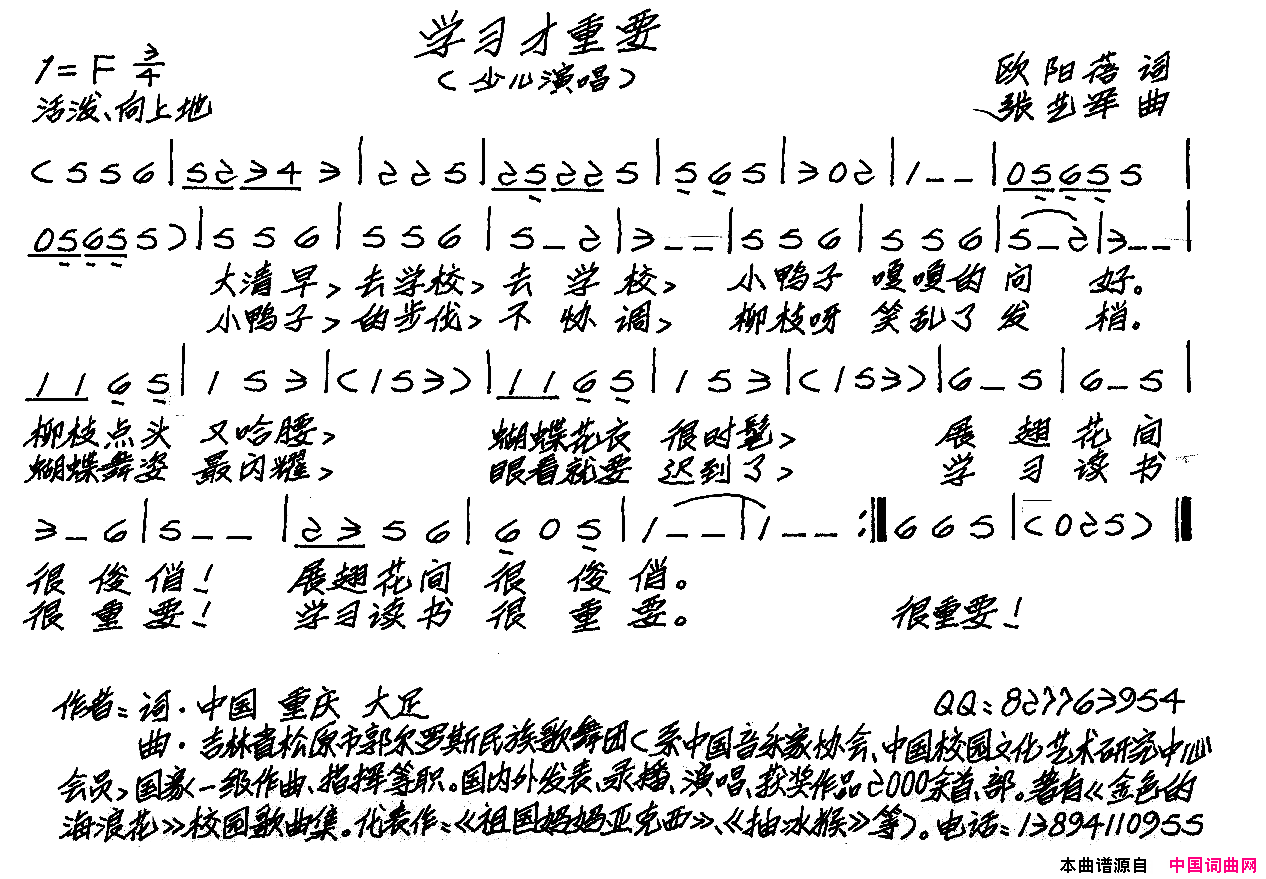 学习才重要
1=F 3/4
(少儿演唱)
欧阳蓓 词
活泼、向上地
张艺军 曲
(5 5 6 | 5 2 3 4 3 | 2 2 5 | 2 5 2 2 5 | 5 6 5 | 3 0 2 | 1 – – | 0 5 6 5 5 |
0 5 6 5 5) | 5 5 6 | 5 5 6 | 5 – 2 | 3 – – | 5 5 6 | 5 5 6 | 5 – 2 | 3 – – |
大清早, 去学校, 去 学 校, 小鸭子 嘎嘎的 问 好。
小鸭子, 的步伐, 不 协 调, 柳枝呀 笑乱了 发 梢。
1 1 6 5 | 1 5 3 | (1 5 3) | 1 1 6 5 | 1 5 3 | (1 5 3) | 6 – 5 | 6 – 5 |
柳枝点头 又哈腰, 蝴蝶花衣 很时髦, 展 翅 花 间
蝴蝶舞姿 最闪耀, 眼看就要 迟到了, 学 习 读 书
3 – 6 | 5 – – | 2 3 5 6 | 6 0 5 | 1 – – | 1 – – :‖ 6 6 5 | (0 2 5) ‖
很 俊 俏! 展翅花间 很 俊 俏。
很 重 要! 学习读书 很 重 要。 很重要!
作者: 词·中国 重庆 大足 QQ:827763954
曲·吉林省松原市郭尔罗斯民族歌舞团(系中国音乐家协会、中国校园文化艺术研究中心
会员,国家一级作曲、指挥等职。国内外发表、录播、演唱、获奖作品2000余首、部。著有《金色的
海浪花》校园歌曲集。代表作:《祖国妈妈亚克西》、《抽冰猴》等)。电话:13894110955
本曲谱源自 中国词曲网